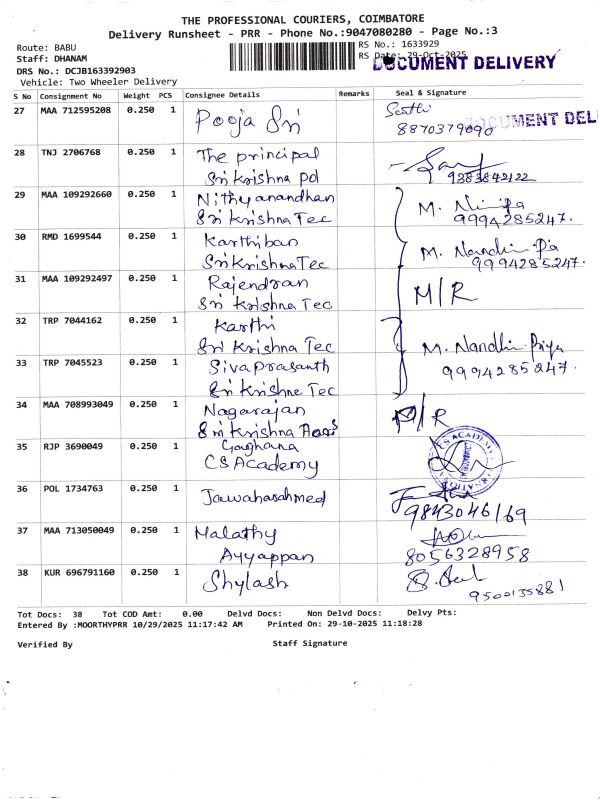 THE PROFESSIONAL COURIERS, COIMBATORE
Delivery Runsheet - PRR - Phone No.:9047080280 - Page No.:3
Route: BABU
RS No.: 1633929
Staff: DHANAM
RS Date: 29-Oct-2025
DOCUMENT DELIVERY
DRS No.: DCJB163392903
Vehicle: Two Wheeler Delivery
S No Consignment No Weight PCS Consignee Details Remarks Seal & Signature
27 MAA 712595208 0.250 1 Pooja Sri
8870379090
DOCUMENT DEL
28 TNJ 2706768 0.250 1 The principal
Sri Krishna pol
9383842122
29 MAA 109292660 0.250 1 Nithyanandhan
Sri Krishna Tec
M.
9994285247.
30 RMD 1699544 0.250 1 Karthiban
Sri Krishna Tec
M. Nandhin
9994285247.
31 MAA 109292497 0.250 1 Rajendran
Sri Krishna Tec
M/R
32 TRP 7044162 0.250 1 Karthi
Sri Krishna Tec
M. Nandhin Priya
33 TRP 7045523 0.250 1 Sivaprasanth
9994285247.
Sri Krishne Tec
34 MAA 708993049 0.250 1 Nagarajan
M/R
Sri Krishna
35 RJP 3690049 0.250 1
CS Academy
CS ACADEMY
36 POL 1734763 0.250 1 Jawaharahmed
9843046169
37 MAA 713050049 0.250 1 Malathy
Ayyappan
8056328958
38 KUR 696791160 0.250 1 Shylash
9500135881
Tot Docs: 38 Tot COD Amt: 0.00 Delvd Docs: Non Delvd Docs: Delvy Pts:
Entered By :MOORTHYPRR 10/29/2025 11:17:42 AM Printed On: 29-10-2025 11:18:28
Verified By Staff Signature